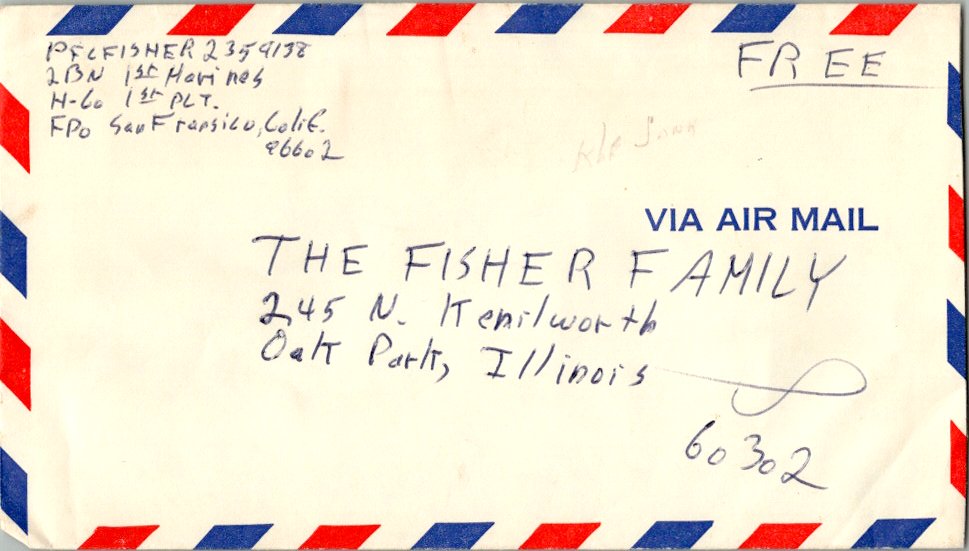 PFC FISHER 2359138
2BN 1st Marines
H-Co 1st PLT.
FPO San Fransico, Calif.
96602
FREE
VIA AIR MAIL
THE FISHER FAMILY
245 N. Kenilworth
Oak Park, Illinois
60302